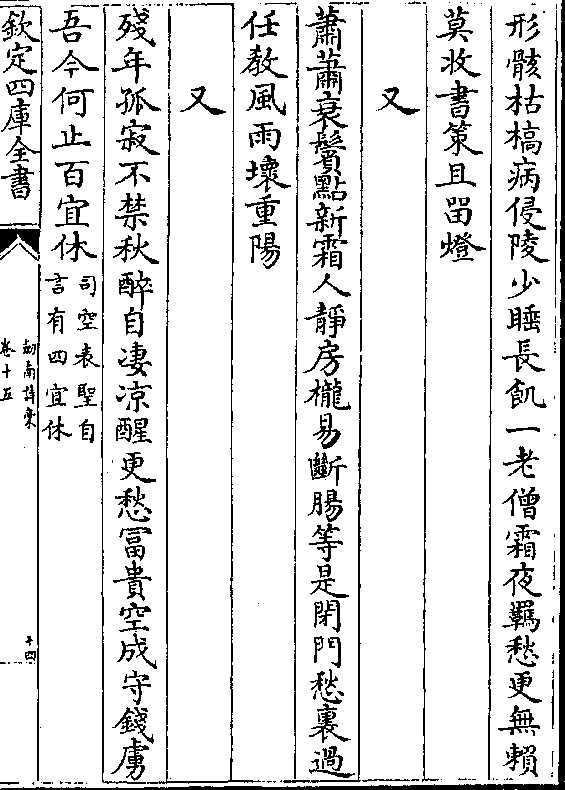 形骸枯槁病侵陵少睡長飢一老僧霜夜羈愁更無賴
莫收書策且留燈
又
蕭蕭衰鬢點新霜人靜房櫳易斷腸等是閉門愁裏過
任教風雨壞重陽
又
殘年孤寂不禁秋醉自凄凉醒更愁冨貴空成守錢虜
吾今何止百宜休
司空表聖自
言有四宜休
欽定四庫全書
劒南詩稾
卷十五
十四